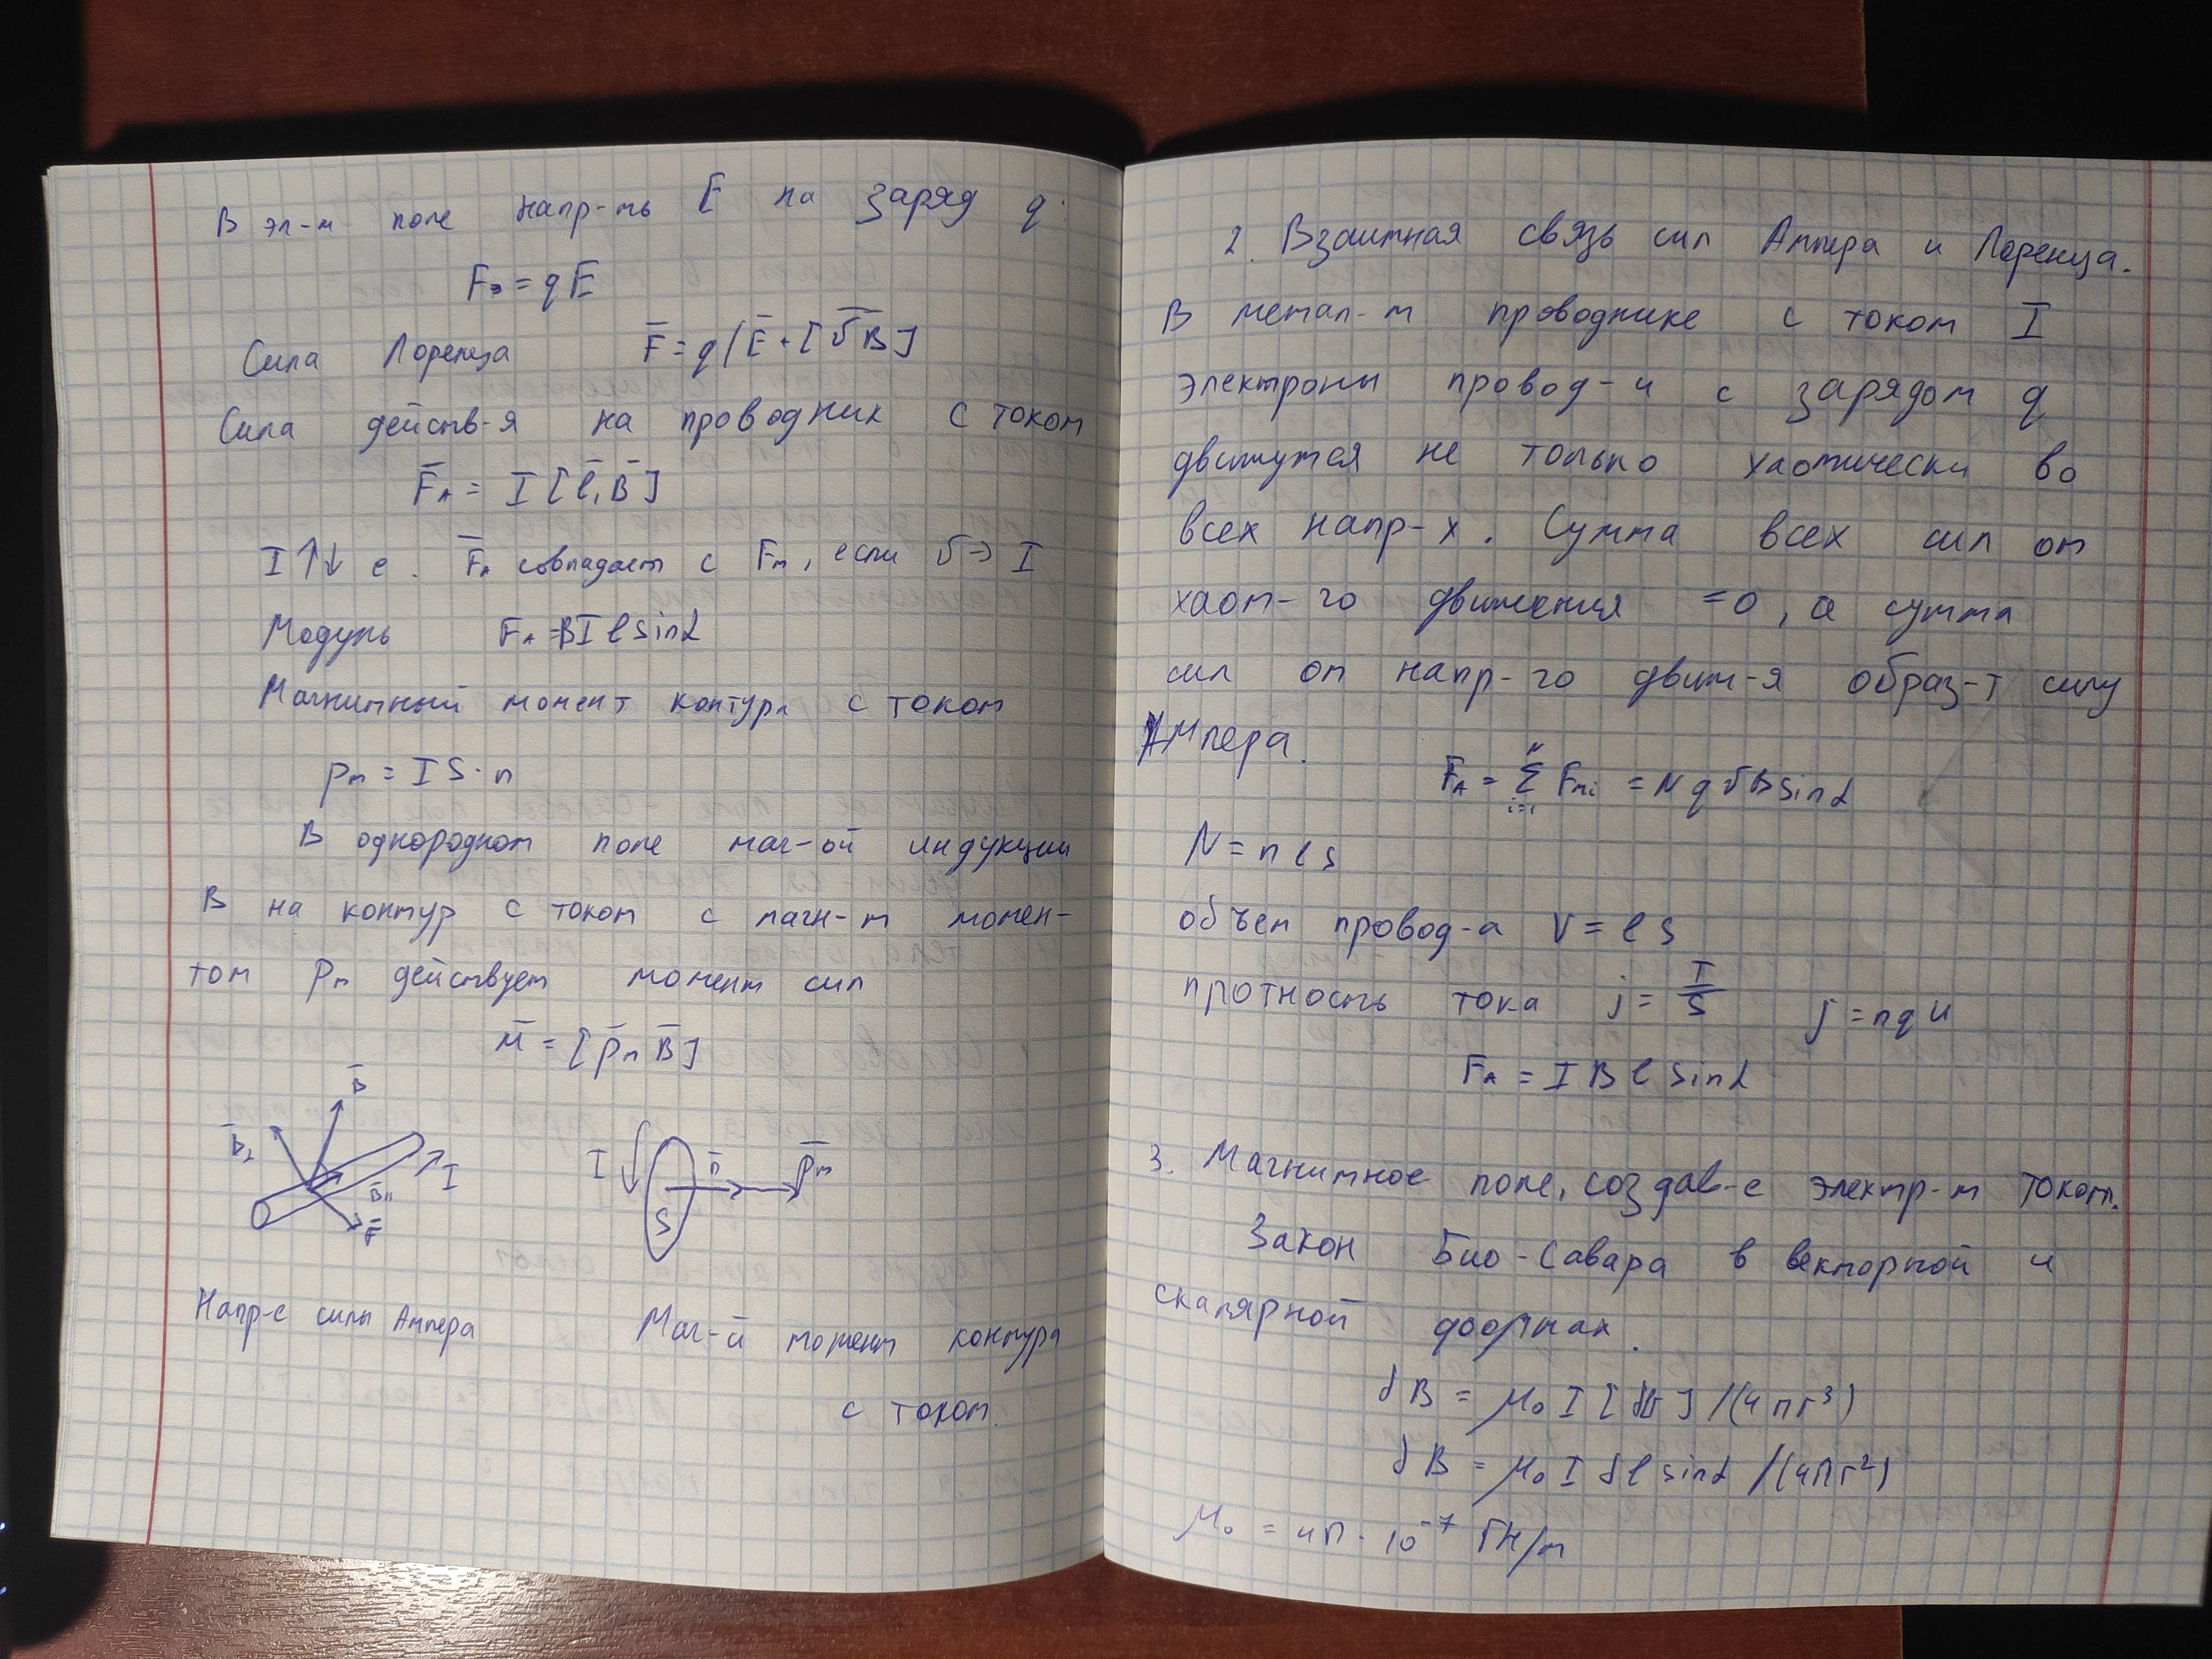 В эл-м поле напр-ть E на заряд q
Fэ = qE
Сила Лоренца F̅ = q(E̅ + [v̅B̅]
Сила действ-я на проводник с током
F̅ₐ = I [l̅, B̅]
I ↑↓ e . F̅ₐ совпадает с Fₘ, если v → I
Модуль Fₐ = BI l sinα
Магнитный момент контура с током
pₘ = I S · n
В однородном поле маг-ой индукции
B на контур с током с магн-м момен-
том pₘ действует момент сил
M̅ = [p̅ₘ B̅]
B̅
B̅⊥
B̅ₗₗ
I
F̅
I
n̅
p̅ₘ
S
Напр-е силы Ампера
Маг-й момент контура
с током.
2. Взаимная связь сил Ампера и Лоренца.
В метал-м проводнике с током I
электроны провод-и с зарядом q
движутся не только хаотически во
всех напр-х. Сумма всех сил от
хаот-го движения =0, а сумма
сил от напр-го движ-я образ-т силу
Ампера.
Fₐ = Σᵢ₌₁ᴺ Fₘᵢ = N q v B sinα
N = n l s
объем провод-а V = l s
протность тока j = I/S j = nqu
Fₐ = I B l sinα
3. Магнитное поле, создав-е электр-м током.
Закон Био-Савара в векторной и
скалярной формах.
dB = μ₀ I [dlr] /(4πr³)
dB = μ₀ I dl sinα /(4πr²)
μ₀ = 4π · 10⁻⁷ Гн/м